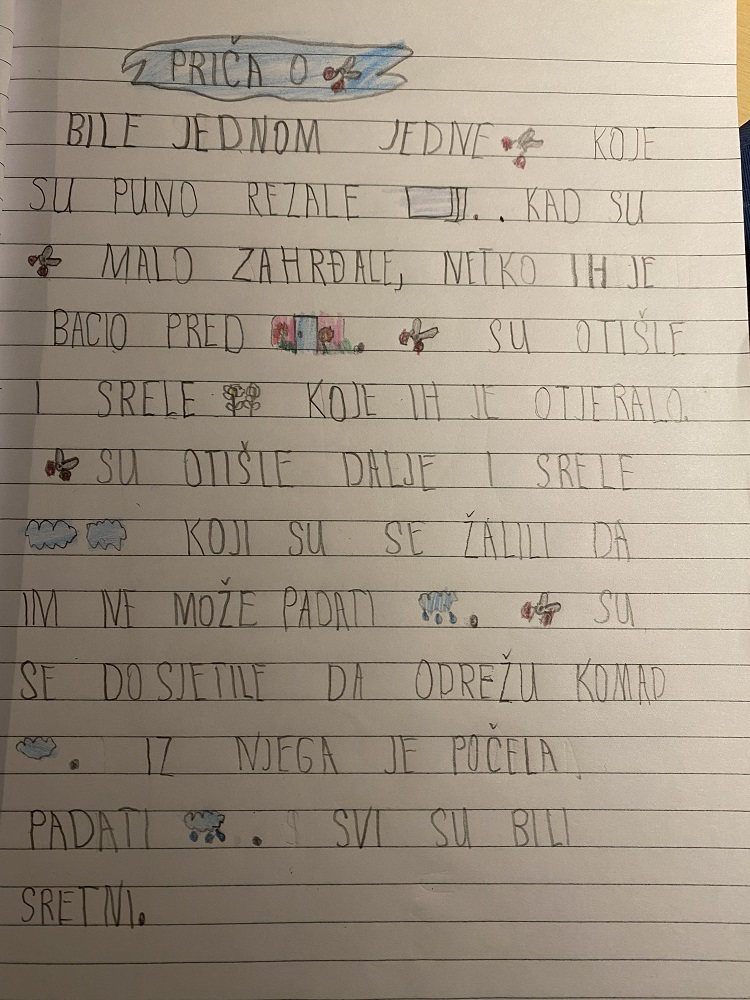 PRIČA O
BILE JEDNOM JEDNE KOJE
SU PUNO REZALE .. KAD SU
MALO ZAHRĐALE, NETKO IH JE
BACIO PRED SU OTIŠLE
I SRELE KOJE IH JE OTJERALO.
SU OTIŠLE DALJE I SRELE
KOJI SU SE ŽALILI DA
IM NE MOŽE PADATI . SU
SE DOSJETILE DA ODREŽU KOMAD
. IZ NJEGA JE POČELA
PADATI . SVI SU BILI
SRETNI.